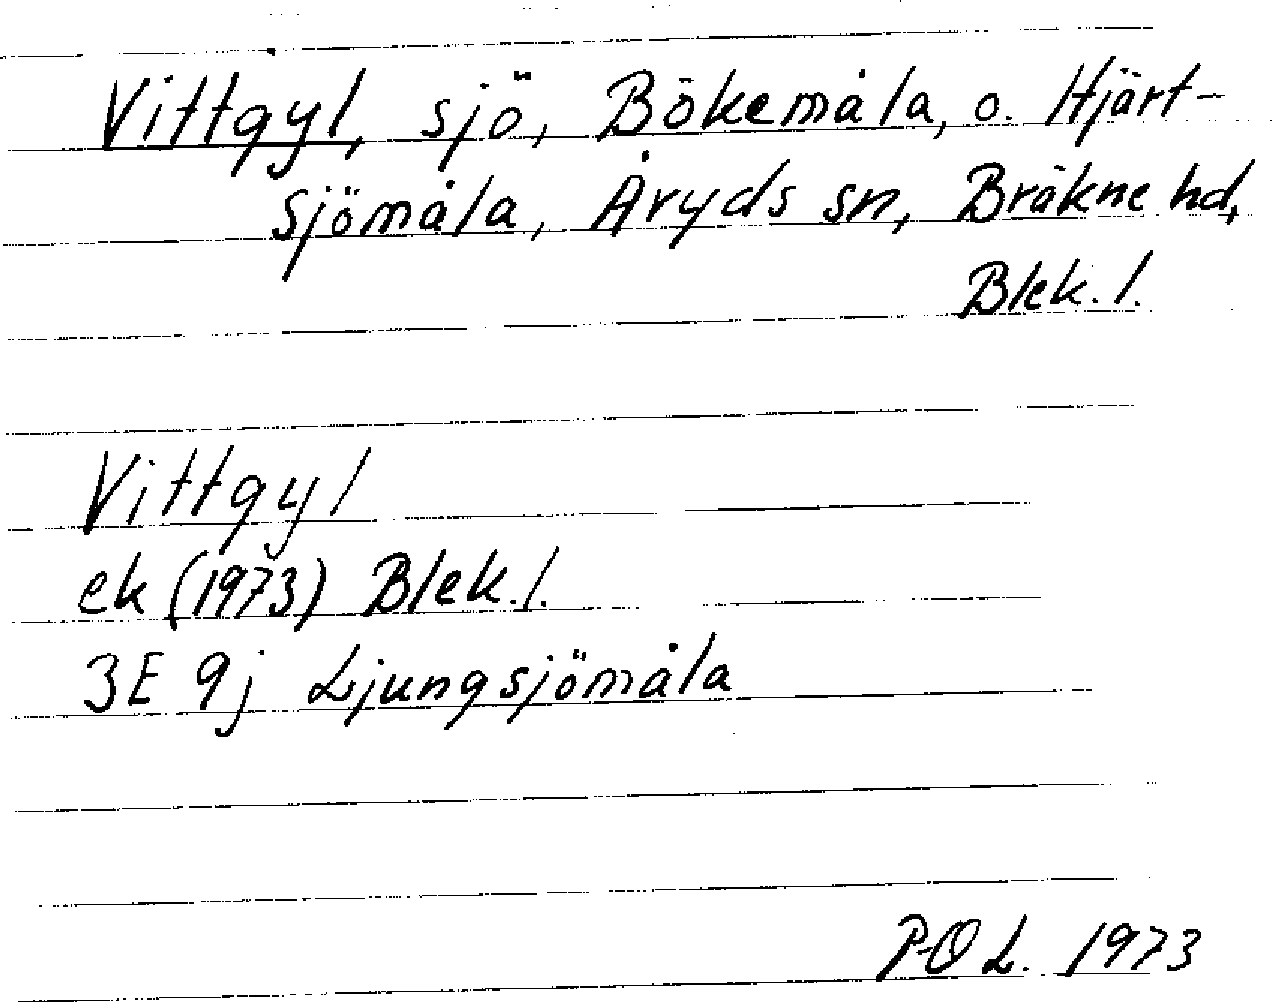 Vittgyl, sjö, Bökemåla, o. Hjärt-
sjömåla, Åryds sn, Bräkne hd,
Blek. l.
Vittgyl
ek (1973) Blek. l.
3E 9j Ljungsjömåla
P-O L. 1973